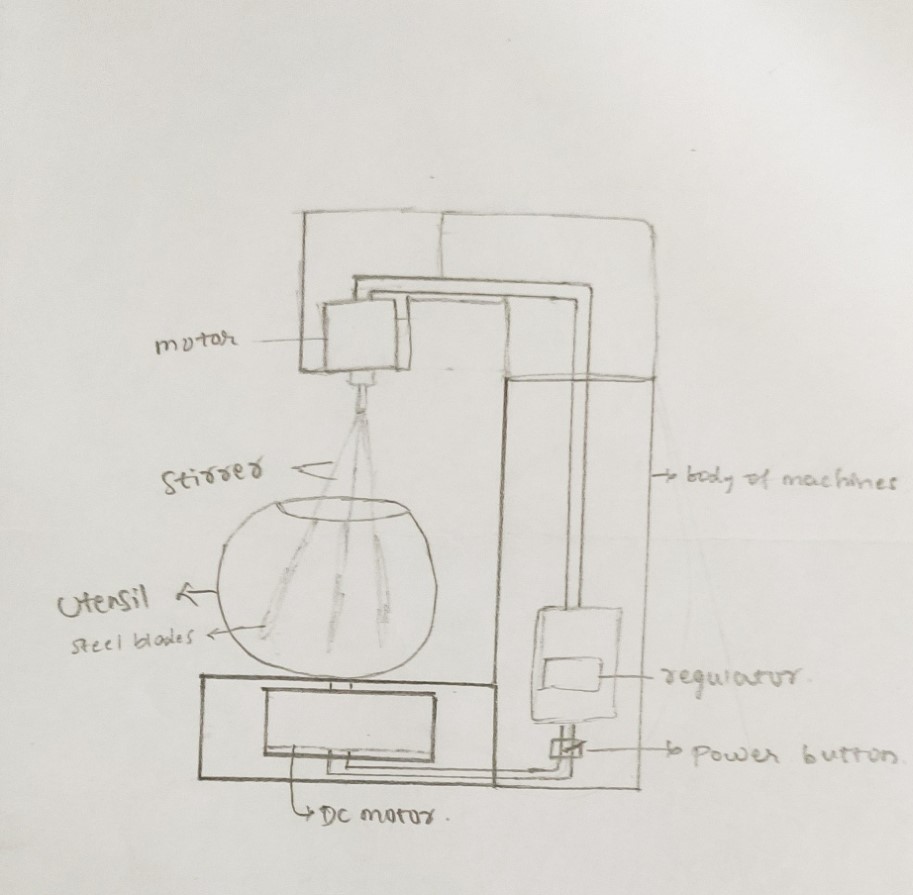 motor
Stirrer
body of machines
Utensil
steel blades
regulator.
Power button.
DC motor.